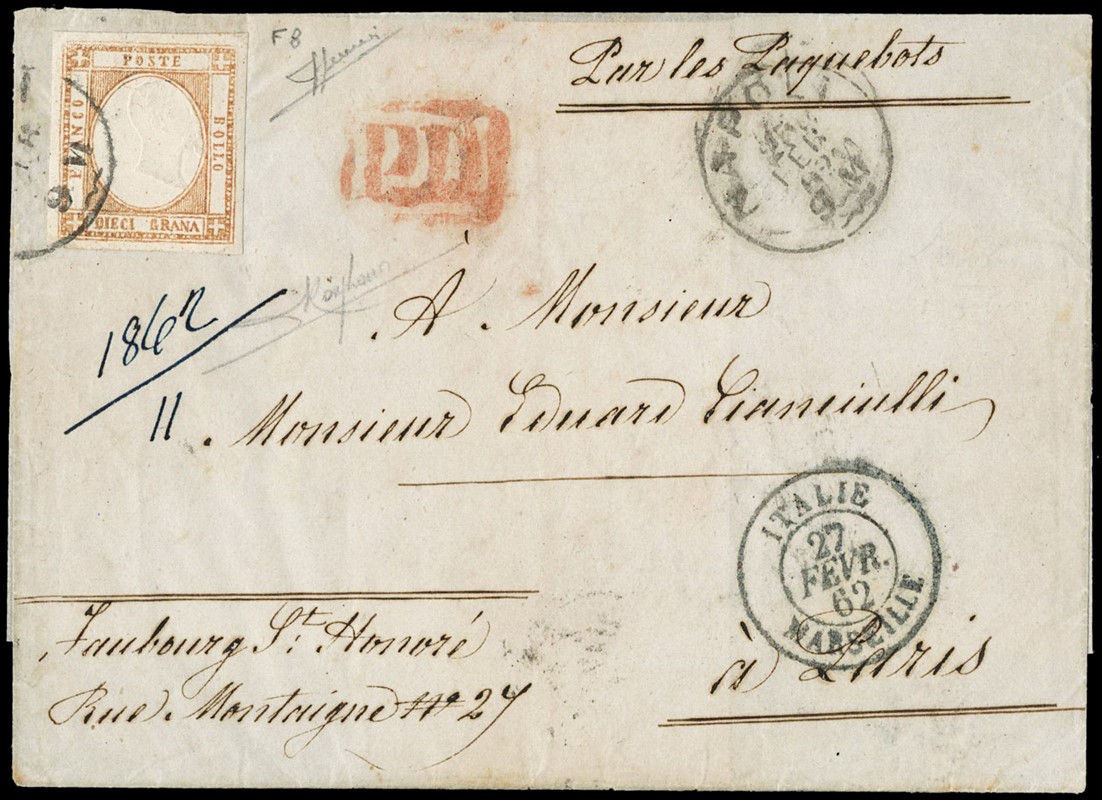 POSTE
FRANCO
BOLLO
DIECI GRANA
F8
PD
Par les Paquebots
NAPOLI
FEB
62
9 M
1862
11
A Monsieur
Monsieur Eduard Cianciulli
ITALIE
27
FEVR.
62
MARSEILLE
Faubourg St. Honoré
Rue Montaigne No 27
à Paris